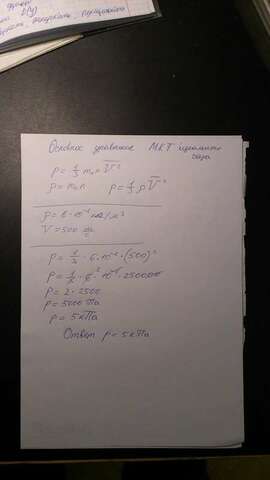 Основное уравнение МКТ идеального
газа
p = 1/3 m₀ n V̅²
ρ = m₀n   p = 1/3 ρ V̅²
ρ = 6 · 10⁻² кг/м³
V = 500 м/с
p = 1/3 · 6 · 10⁻² · (500)²
p = 1/3 · 6² · 10⁻² · 250000
p = 2 · 2500
p = 5000 Па
p = 5 кПа
Ответ p = 5 кПа